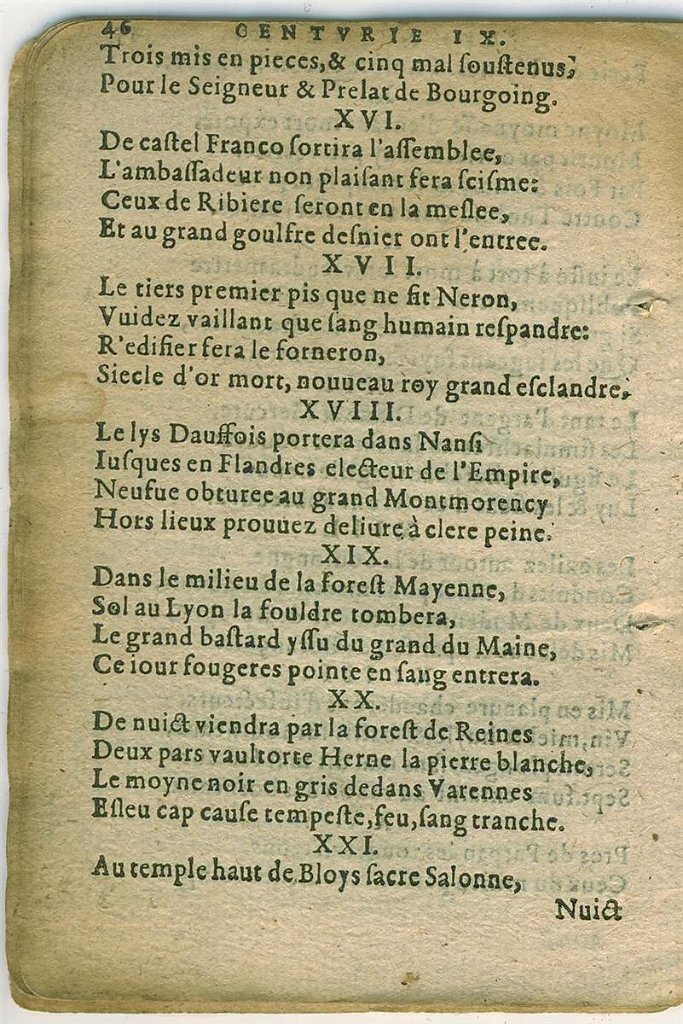 46 CENTVRIE IX.
Trois mis en pieces,& cinq mal ſouſtenus,
Pour le Seigneur & Prelat de Bourgoing.
XVI.
De caſtel Franco ſortira l'aſſemblee,
L'ambaſſadeur non plaiſant fera ſciſme:
Ceux de Ribiere ſeront en la meſlee,
Et au grand goulfre deſnier ont l'entree.
XVII.
Le tiers premier pis que ne fit Neron,
Vuidez vaillant que ſang humain reſpandre:
R'edifier fera le forneron,
Siecle d'or mort, nouueau roy grand eſclandre.
XVIII.
Le lys Dauffois portera dans Nanſi
Iuſques en Flandres electeur de l'Empire,
Neufue obturee au grand Montmorency
Hors lieux prouuez deliure à clere peine.
XIX.
Dans le milieu de la foreſt Mayenne,
Sol au Lyon la fouldre tombera,
Le grand baſtard yſſu du grand du Maine,
Ce iour fougeres pointe en ſang entrera.
XX.
De nuict viendra par la foreſt de Reines
Deux pars vaultorte Herne la pierre blanche,
Le moyne noir en gris dedans Varennes
Eſleu cap cauſe tempeſte,feu,ſang tranche.
XXI.
Au temple haut de Bloys ſacre Salonne,
Nuict